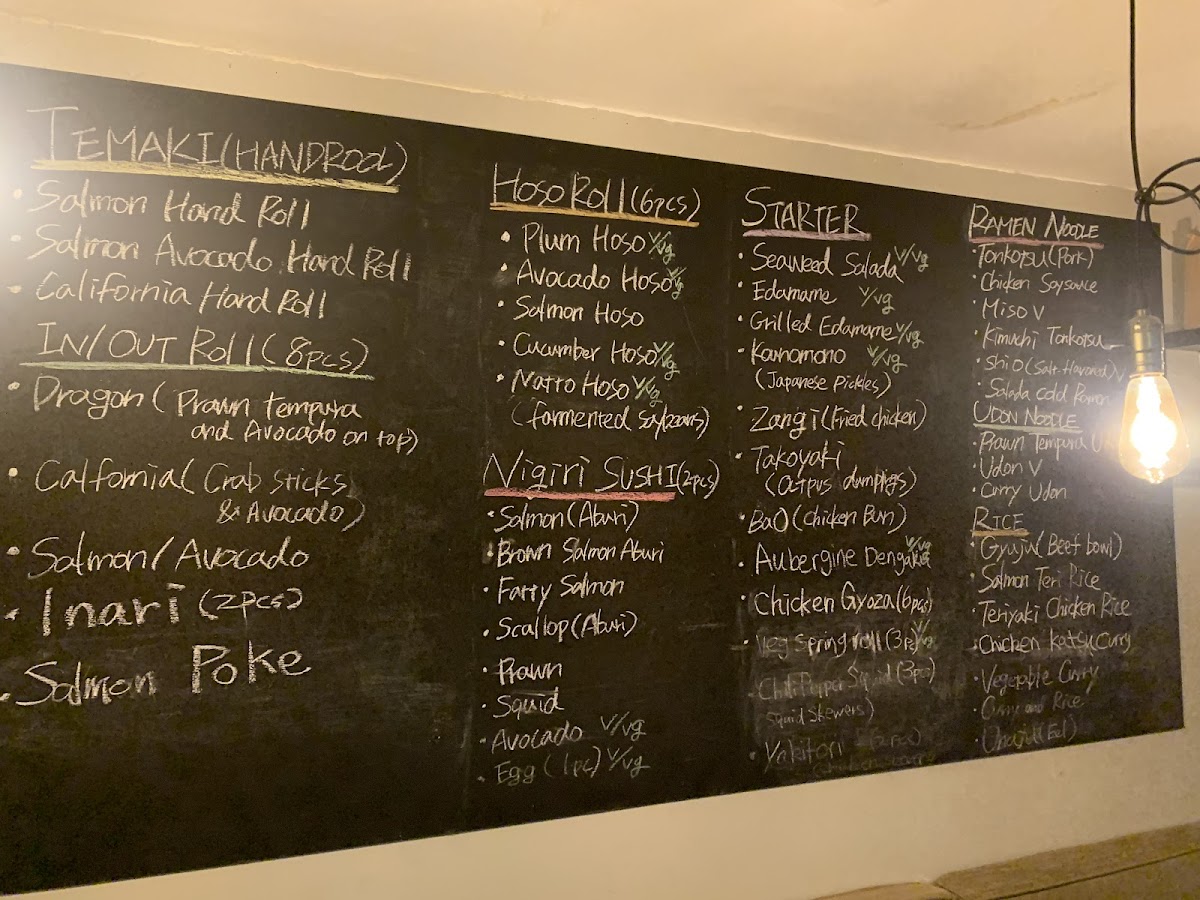 TEMAKI(HANDROOL)
• Salmon Hand Roll
• Salmon Avocado Hand Roll
• California Hand Roll
IN/OUT Roll(8pcs)
• Dragon (Prawn tempura
and Avocado on top)
• Calfornia(Crab sticks
& Avocado)
• Salmon/Avocado
• Inari (2pcs)
• Salmon Poke
HOSO ROLL(6pcs)
• Plum Hoso V/vg
• Avocado Hoso V/vg
• Salmon Hoso
• Cucumber Hoso V/vg
• Natto Hoso V/vg
(formented
NIGIRI SUSHI(2pcs)
• Salmon(Aburi)
• Brown Salmon Aburi
• Fatty Salmon
• Scallop(Aburi)
• Prawn
• Squid
• Avocado V/vg
• Egg (1pc) V/vg
STARTER
• Seaweed Salada V/vg
• Edamame V/vg
• Grilled Edamame V/vg
• Kounomono V/vg
(Japanese Pickles)
• Zangi(Fried chicken)
• Takoyaki
(Octpus dumpligs)
• BaO(Chicken Bun)
• Aubergine Dengaku V/vg
• Chicken Gyoza(6pcs)
• Veg Spring roll(3ps) V/vg
• Chili Pepper Squid(3pc)
Squid Skewers)
• Yakitori
RAMEN NOODLE
• Tonkotsu(Pork)
• Chicken Soysauce
• Miso V
• Kimuchi Tonkotsu
• Shio(Salt-flavored)V
• Salada cold Ramen
UDON NOODLE
• Prawn Tempura
• Udon V
• Curry Udon
RICE
• Gyuju(Beef bowl)
• Salmon Teri Rice
• Teriyaki Chicken Rice
• Chicken Katsu Curry
• Vegetable Curry
• Curry and Rice
• Unaju(Eel)